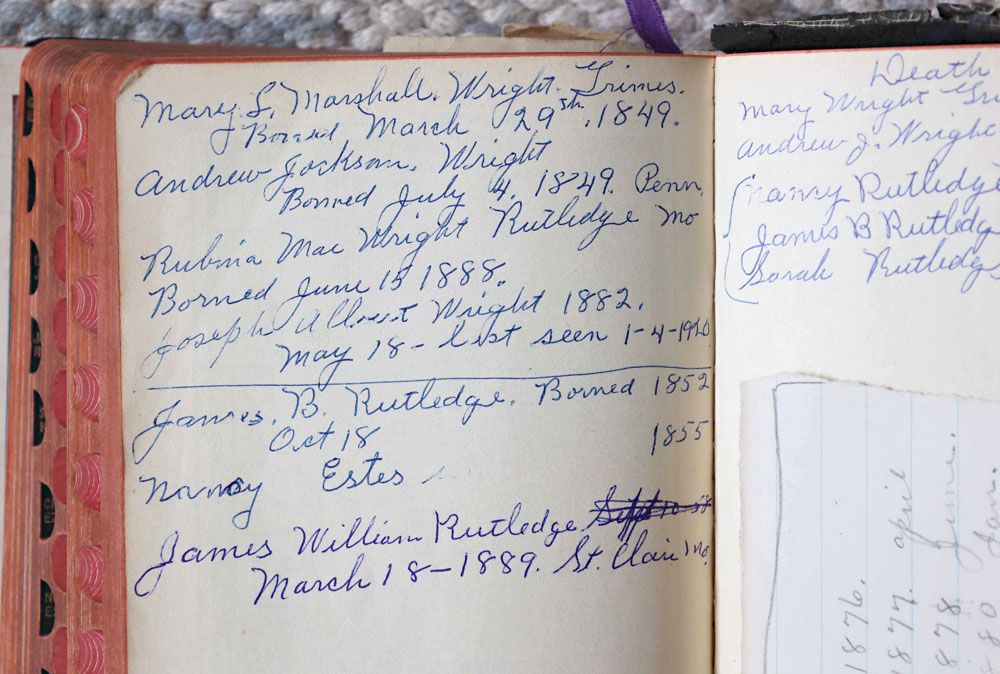 Mary L. Marshall. Wright. Grimes.
Borned March 29th. 1849.
Andrew Jockson. Wright
Borned July 4, 1849. Penn.
Rubina Mae Wright Rutledge Mo
Borned June 15 1888.
Joseph Albert Wright 1882.
May 18 - last seen 1-4-1920
James. B. Rutledge. Borned 1852
Oct 18 1855
Nancy Estes
James William Rutledge. Sept 10
March 18 - 1889. St. Clair Mo.
Death
Mary Wright Gri
Andrew J. Wright
Nancy Rutledge
James B Rutledg
Sarah Rutledg
1876.
1877. april
1878 June.
80 Jan.